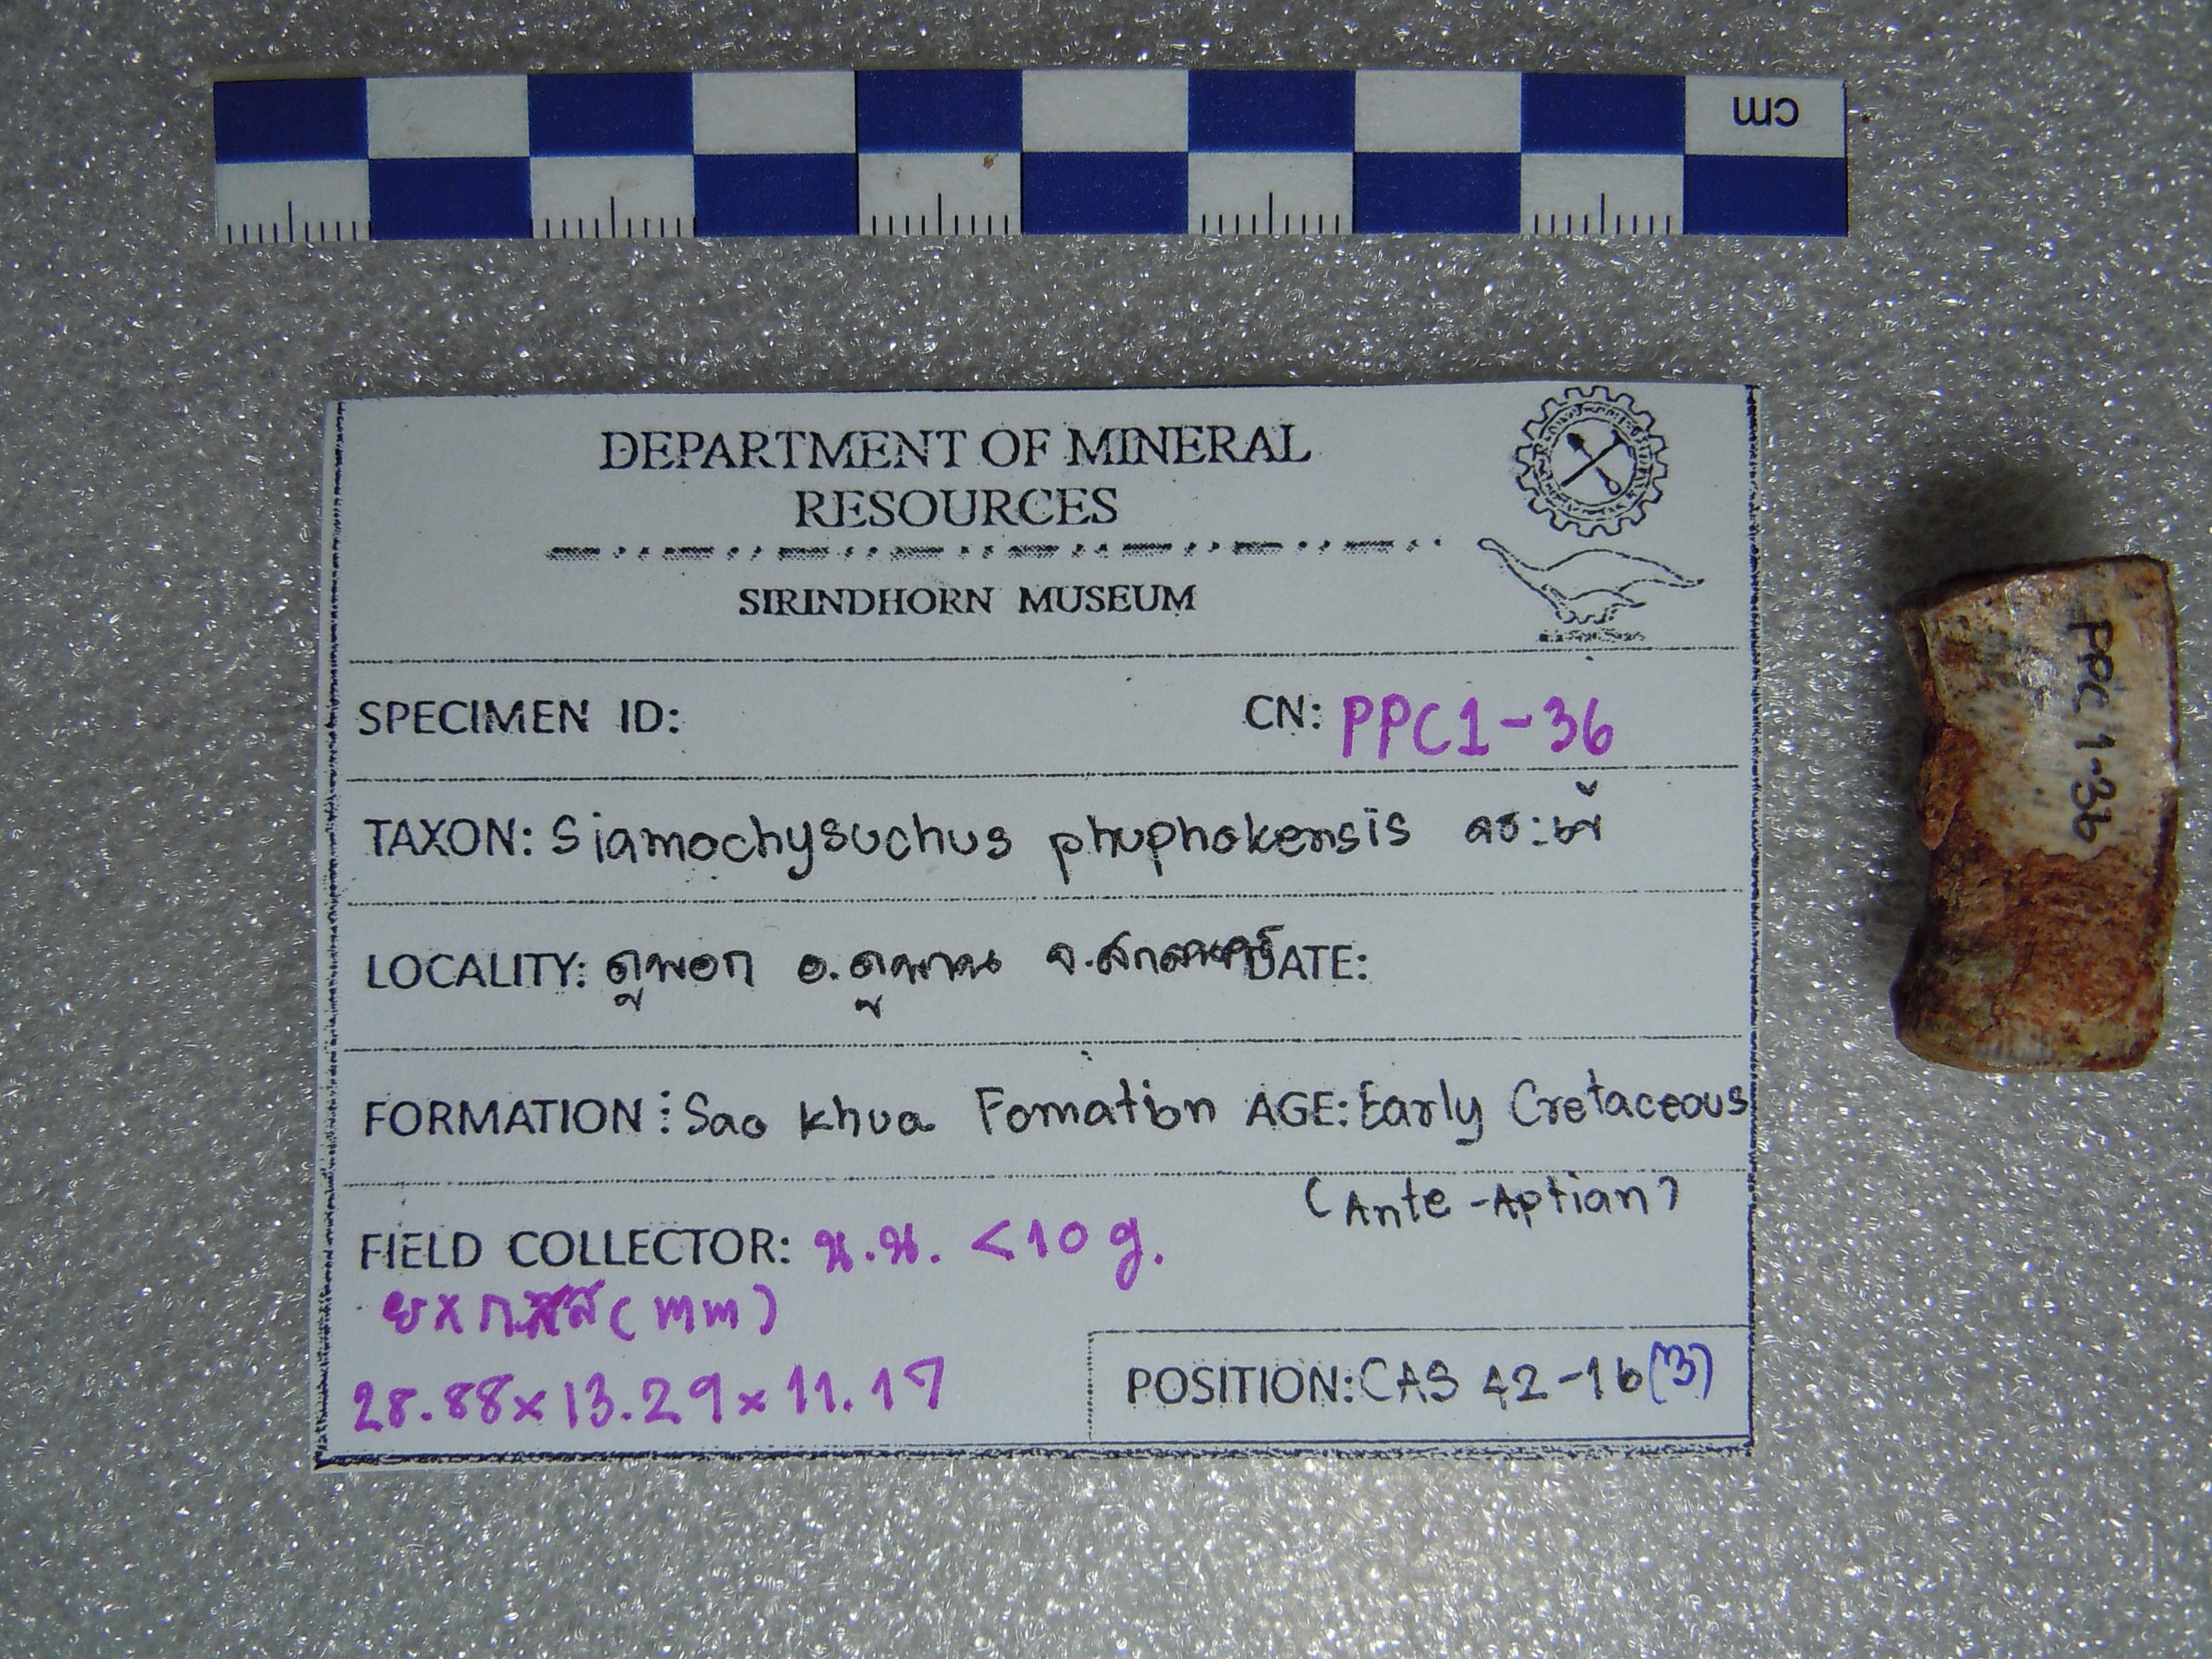 cm
DEPARTMENT OF MINERAL
RESOURCES
SIRINDHORN MUSEUM
SPECIMEN ID: CN: PPC1-36
TAXON: Siamochysuchus phuphokensis
LOCALITY: ภูพอก อ.ภูพาน จ.สกลนคร DATE:
FORMATION: Sao Khua Fomation AGE: Early Cretaceous
(Ante-Aptian)
FIELD COLLECTOR: น.น. <10 g.
(mm)
28.88x13.29x11.17
POSITION: CAS 42-16(3)
PPC1-36